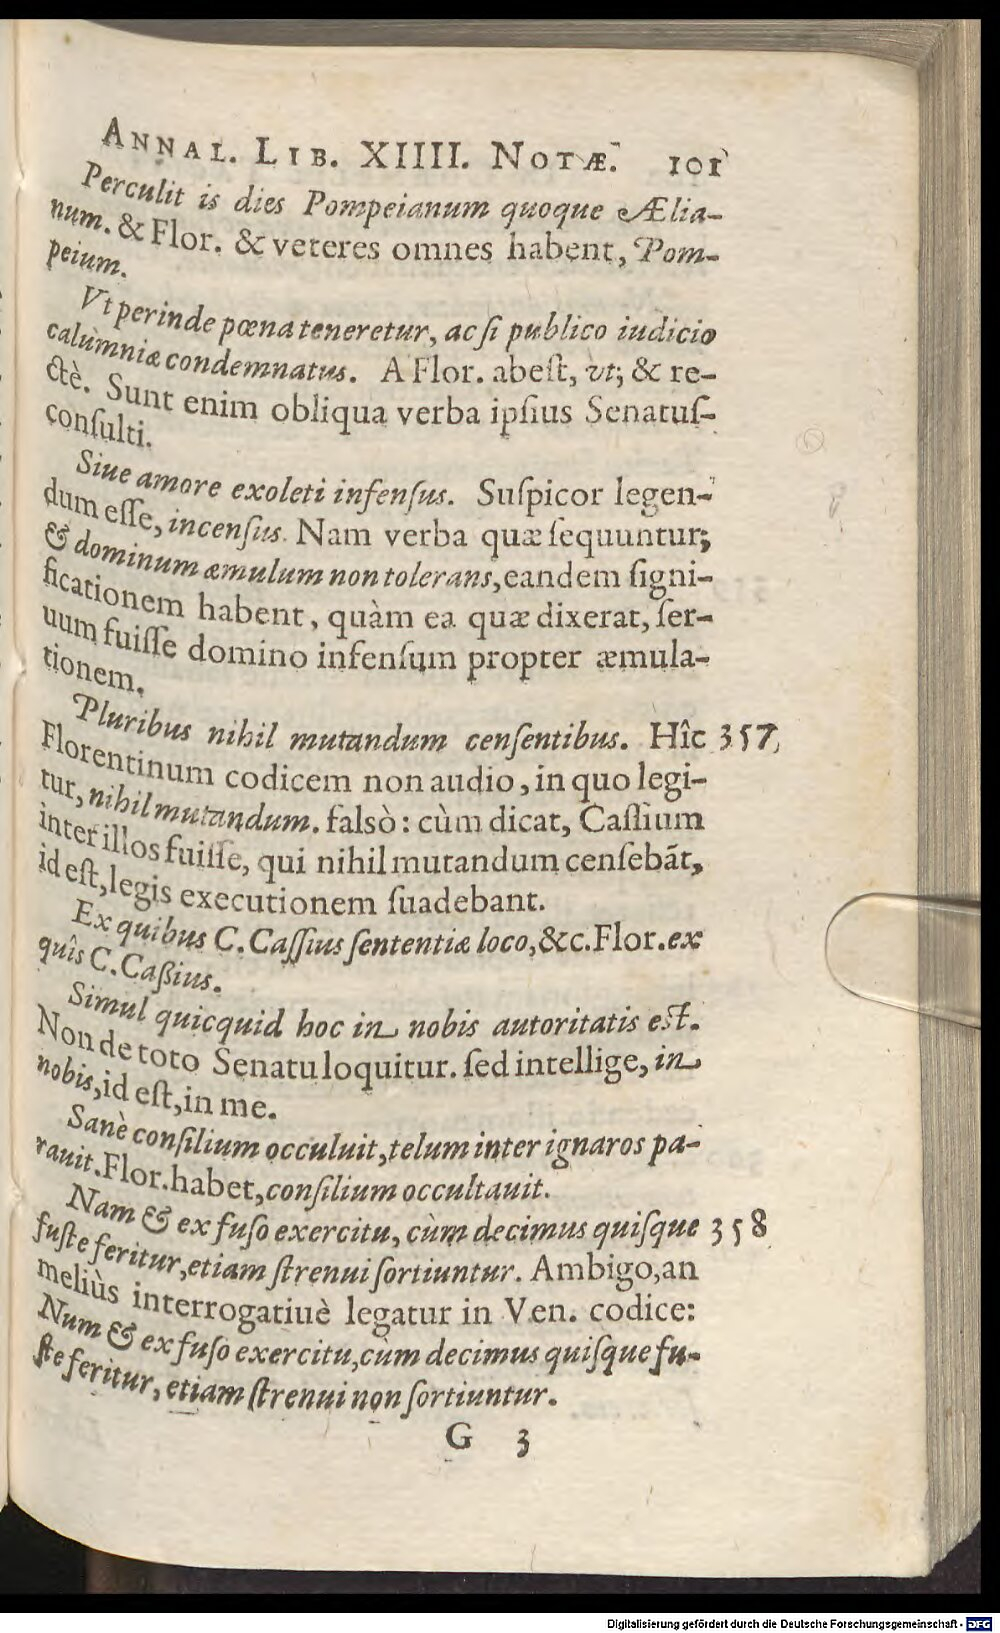 ANNAL. LIB. XIIII. NOTÆ. 101
Perculit is dies Pompeianum quoque Ælia-
num. & Flor. & veteres omnes habent, Pom-
peium.
Vt perinde pœna teneretur, ac ſi publico iudicio
calùmniæ condemnatus. A Flor. abeſt, vt; & re-
ctè. Sunt enim obliqua verba ipſius Senatuſ-
conſulti.
Siue amore exoleti infenſus. Suſpicor legen-
dum eſſe, incenſus. Nam verba quæ ſequuntur;
& dominum æmulum non tolerans, eandem ſigni-
ficationem habent, quàm ea quæ dixerat, ſer-
uum fuiſſe domino infenſum propter æmula-
tionem.
Pluribus nihil mutandum cenſentibus. Hîc 357
Florentinum codicem non audio, in quo legi-
tur, nihil mutandum. falsò: cùm dicat, Caſſium
inter illos fuiſſe, qui nihil mutandum cenſebãt,
id eſt, legis executionem ſuadebant.
Ex quibus C. Caſſius ſententiæ loco, &c. Flor. ex
quîs C. Caßius.
Simul quicquid hoc in nobis autoritatis eſt.
Non de toto Senatu loquitur. ſed intellige, in
nobis, id eſt, in me.
Sanè conſilium occuluit, telum inter ignaros pa-
rauit. Flor. habet, conſilium occultauit.
Nam & ex fuſo exercitu, cùm decimus quiſque 358
fuſte feritur, etiam ſtrenui ſortiuntur. Ambigo, an
meliùs interrogatiuè legatur in Ven. codice:
Num & ex fuſo exercitu, cùm decimus quiſque fu-
ſte feritur, etiam ſtrenui non ſortiuntur.
G 3
Digitalisierung gefördert durch die Deutsche Forschungsgemeinschaft - DFG